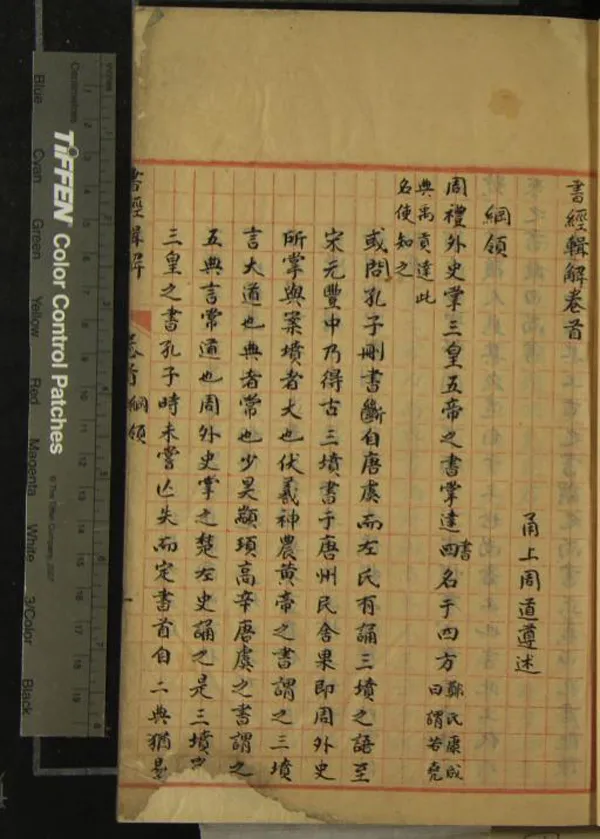 書經輯解卷首
甬上周道遵述
綱領
周禮外史掌三皇五帝之書掌達書名于四方鄭氏康成曰謂若堯
典禹貢達此
名使知之
或問孔子刪書斷自唐虞而左氏有誦三墳之語至
宋元豐中乃得古三墳書于唐州民舍果即周外史
所掌與案墳者大也伏羲神農黃帝之書謂之三墳
言大道也典者常也少昊顓頊高辛唐虞之書謂之
五典言常道也周外史掌之楚左史誦之是三墳
三皇之書孔子時未嘗亡失而定書首自二典猶是
書經輯解 卷首 綱領
一
TIFFEN Color Control Patches
© The Tiffen Company, 2007
Centimetres
Inches
Blue
Cyan
Green
Yellow
Red
Magenta
White
3/Color
Black